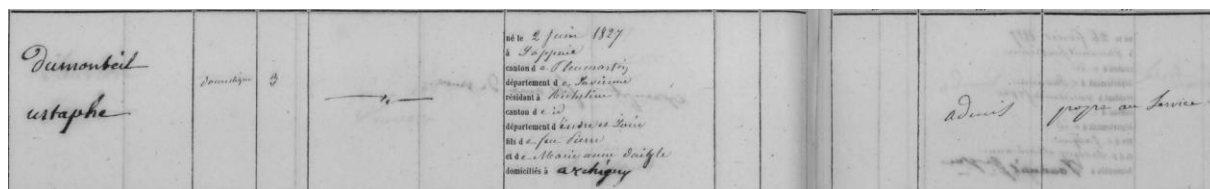 Dumonteil
ustaphe
domestique
3
né le 2 Juin 1827
à
canton de Pleumartin
département de La vienne
résidant à Richelieu
canton de id
département d'indre et Loire
fils de feu Pierre
et de Marie anne
domiciliés à archigny
admis
propre au Service